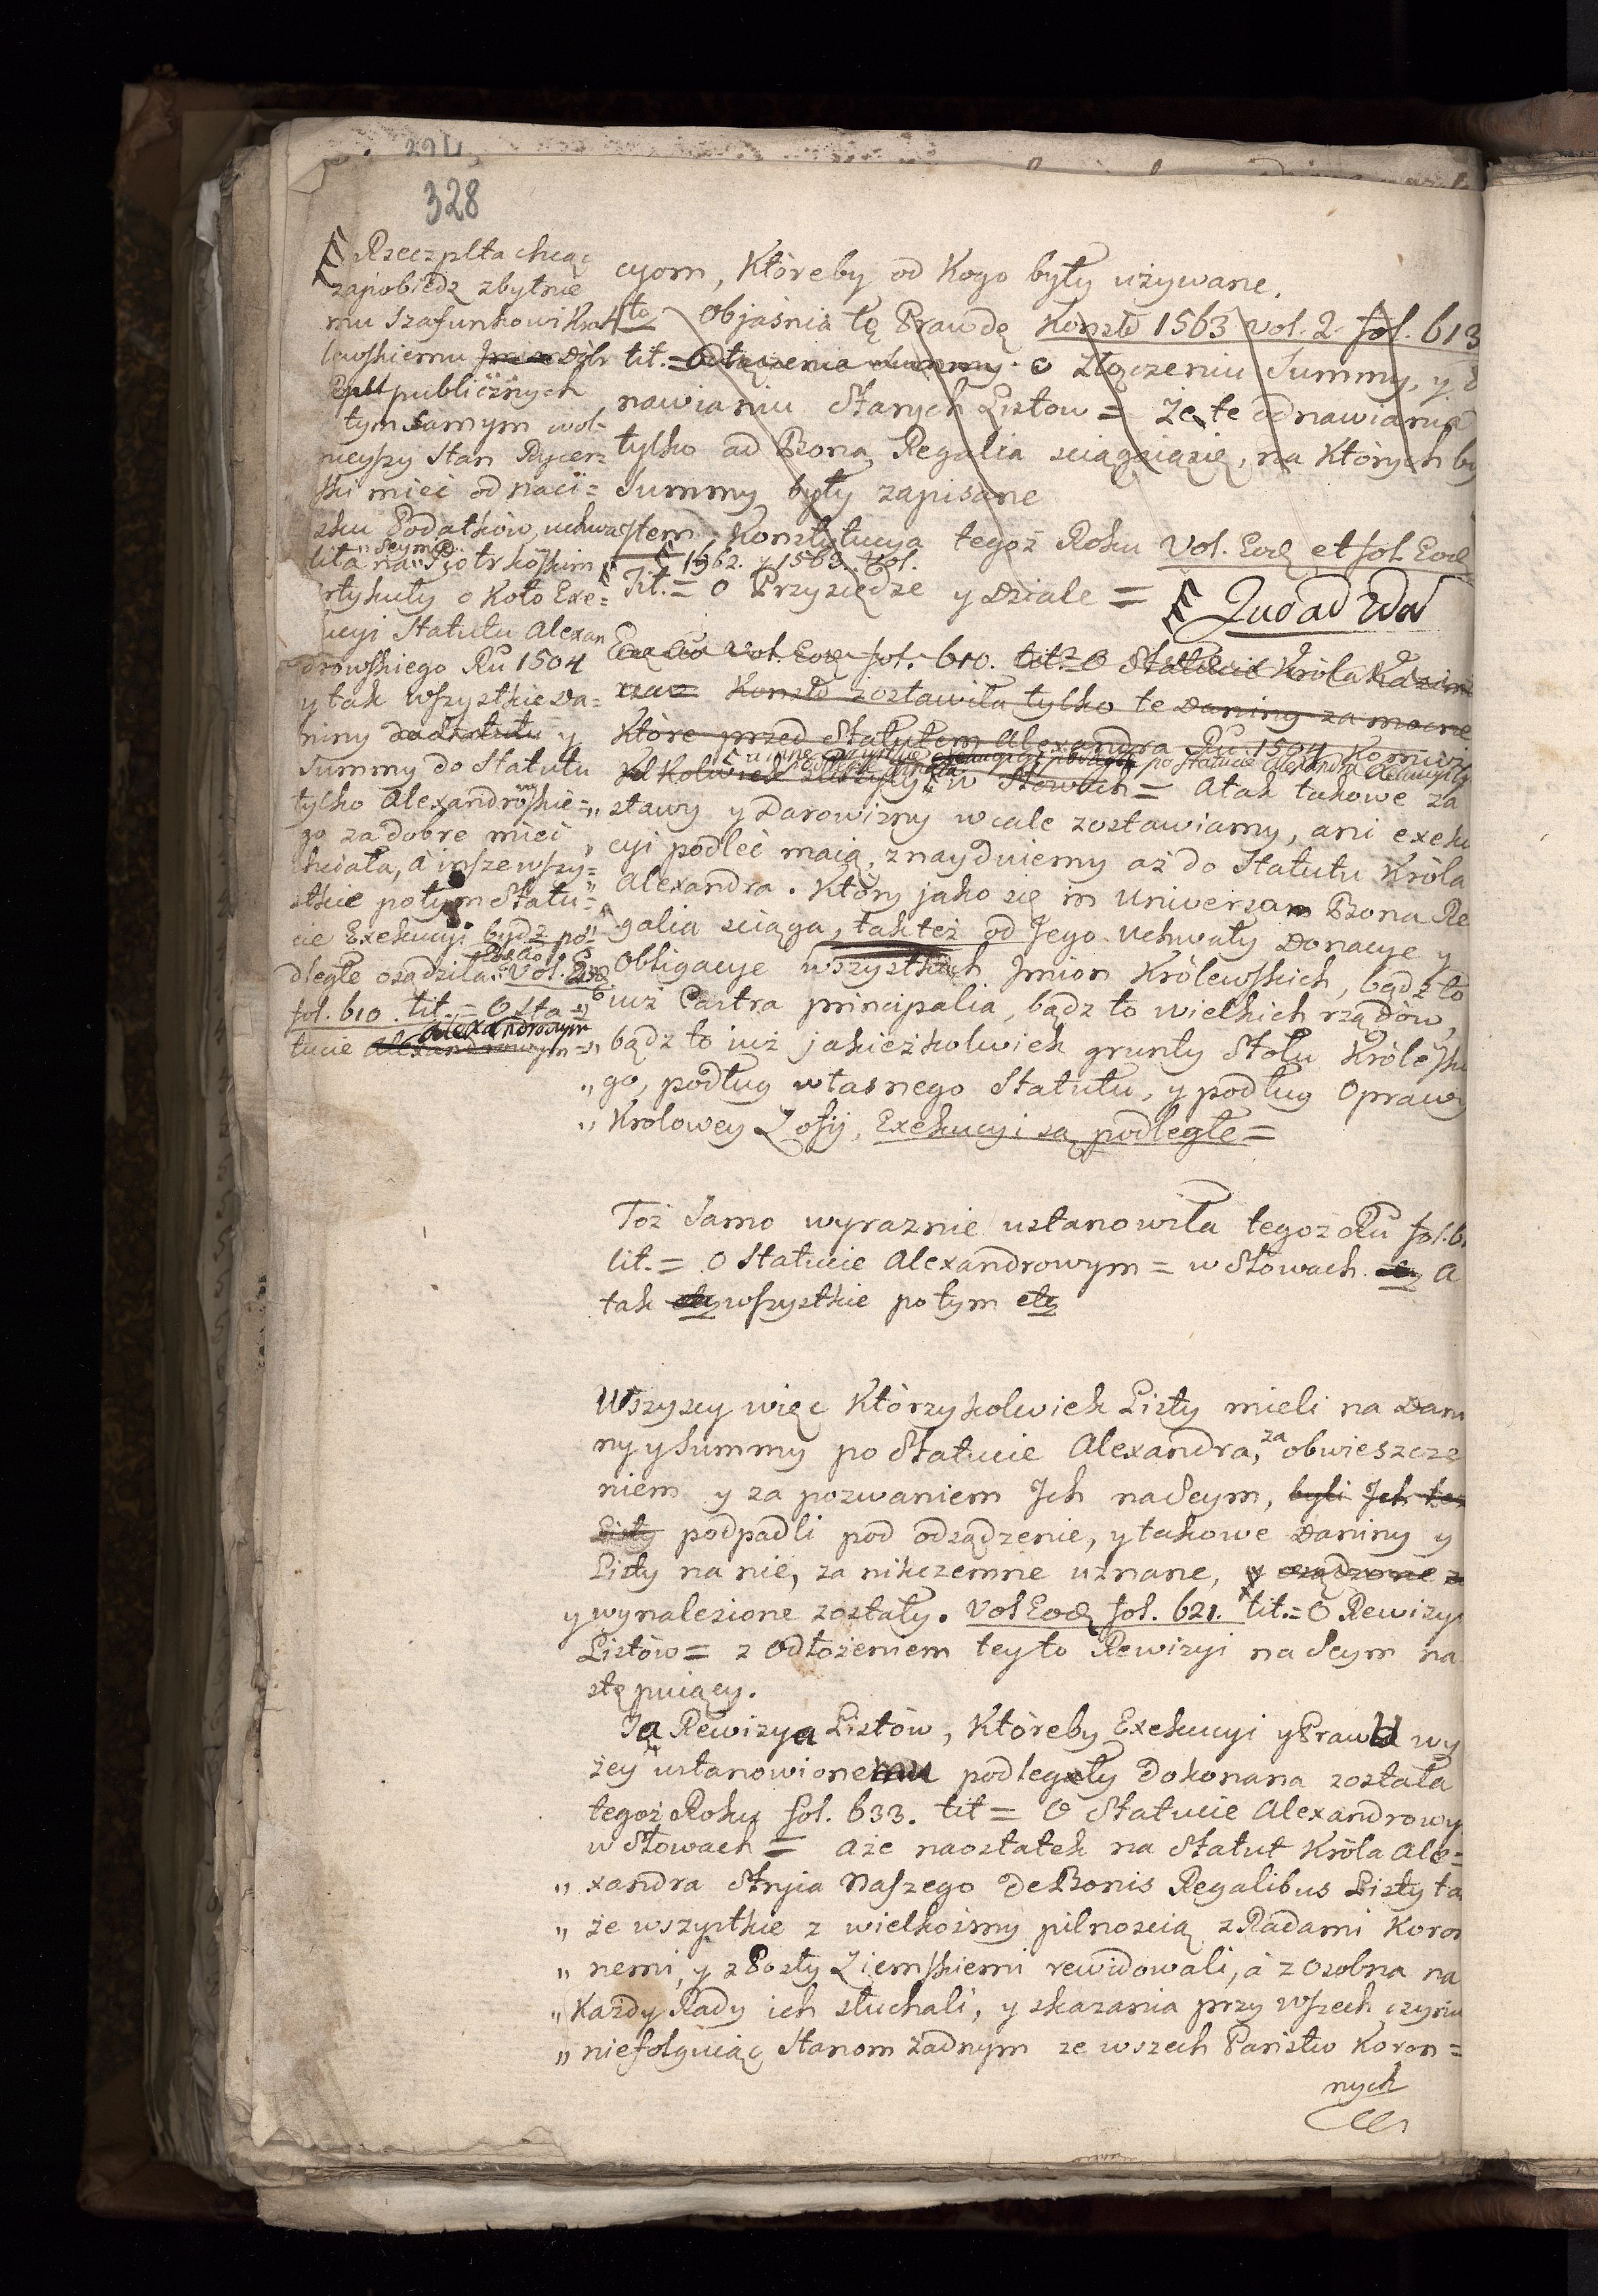 328
Rzeczplta chcąc
zapobiedz zbytnie
mu szafunkowi Kró
lewskiemu Dóbr
publicznych
tym samym wol-
nieyszy Stan Rycerz
ski mieć od naci=
sku Podatków, uchwa
liła na Seymie Piotrkowskim
rtykuły o Koło Exe=
ucyi Statutu Alexan
drowskiego Ru 1504
y tak wszystkie Da=
niny do Statutu y
Summy do Statutu
tylko Alexandrowskie=
go za dobre mieć
chciała, à insze wszy=
stkie potym Statu=
cie Exekucyi bydz po=
dległe osądziła. Vol. Eod
fol. 610. tit. = O Sta=
tucie Alexandrowym
Alexandrowym =
cyom, Któreby od Kogo były używane.
4to Objaśnia tę Prawdę Konstł 1563 vol. 2. fol. 613
tit. = O złączeniu Summy, y
nawianiu Starych Listow = Że te odnawiania
tylko ad Bona Regalia sciągaią się, na Których by
Summy były zapisane
Item Konstytucya tegoż Roku Vol. Eod et fol. Eod
1562. y 1563. Vol.
Tit. = O Przysiędze y Dziale = Quo ad
Vol. Eod fol. 610. tit = O Statucie Króla Kazim
Konstł zostawiła tylko te Daniny za mocne
Które przed Statutem Alexandra Ru 1504
po Statucie Alexandra
w Słowach = A tak takowe za
" stawy y Darowizny wcale zostawiamy, ani exeku
" cyi podledz maią, znayduiemy aż do Statutu Króla
" Alexandra. Który jako się in Universam Bona Re
" galia sciąga, takteż od Jego Uchwały Donacye y
" Obligacye wszystkich Jmion Królewskich, bądź to
" iuż Castra principalia, bądz to wielkich rządów,
" bądz to iuż jakieżkolwiek grunty Stołu Królewski
" go, podług własnego Statutu, y podług Oprawy
" Krolowey Zofij, Exekucyi są podległe =
Toż Samo wyraznie ustanowiła tegoż Ru fol. 6
tit. = O Statucie Alexandrowym = w Słowach A
tak wszystkie potym etc
Wszyscy więc Którzykolwiek Listy mieli na Dani
ny y Summy po Statucie Alexandra, za obwieszcze
niem y za pozwaniem Jch na Seym, byli Jch
Listy podpadli pod osądzenie, y takowe Daniny y
Listy na nie, za nikczemne uznane, y osądzone
y wynalezione zostały. Vol Eod fol. 621. tit. = O Rewizyi
Listów = z Odłożeniem tey to Rewizyi na Seym na
stępuiący.
Ta Rewizya Listów, Któreby Exekucyi y Prawu wy
żey ustanowionemu podległy dokonana została
tegoż Roku fol. 633. tit = O Statucie Alexandrowy
w Słowach = A że naostatek na Statut Króla Ale=
" xandra Stryia Naszego de Bonis Regalibus Listy ta
" że wszystkie z wielkośmy pilnoscią z Radami Koron
" nemi, y z Posły Ziemskiemi rewidowali, à z osobna na
" Każdy Rady ich słuchali, y skazania przy wszech czyniu
" niefolguiąc Stanom żadnym ze wszech Państw Koron=
nych